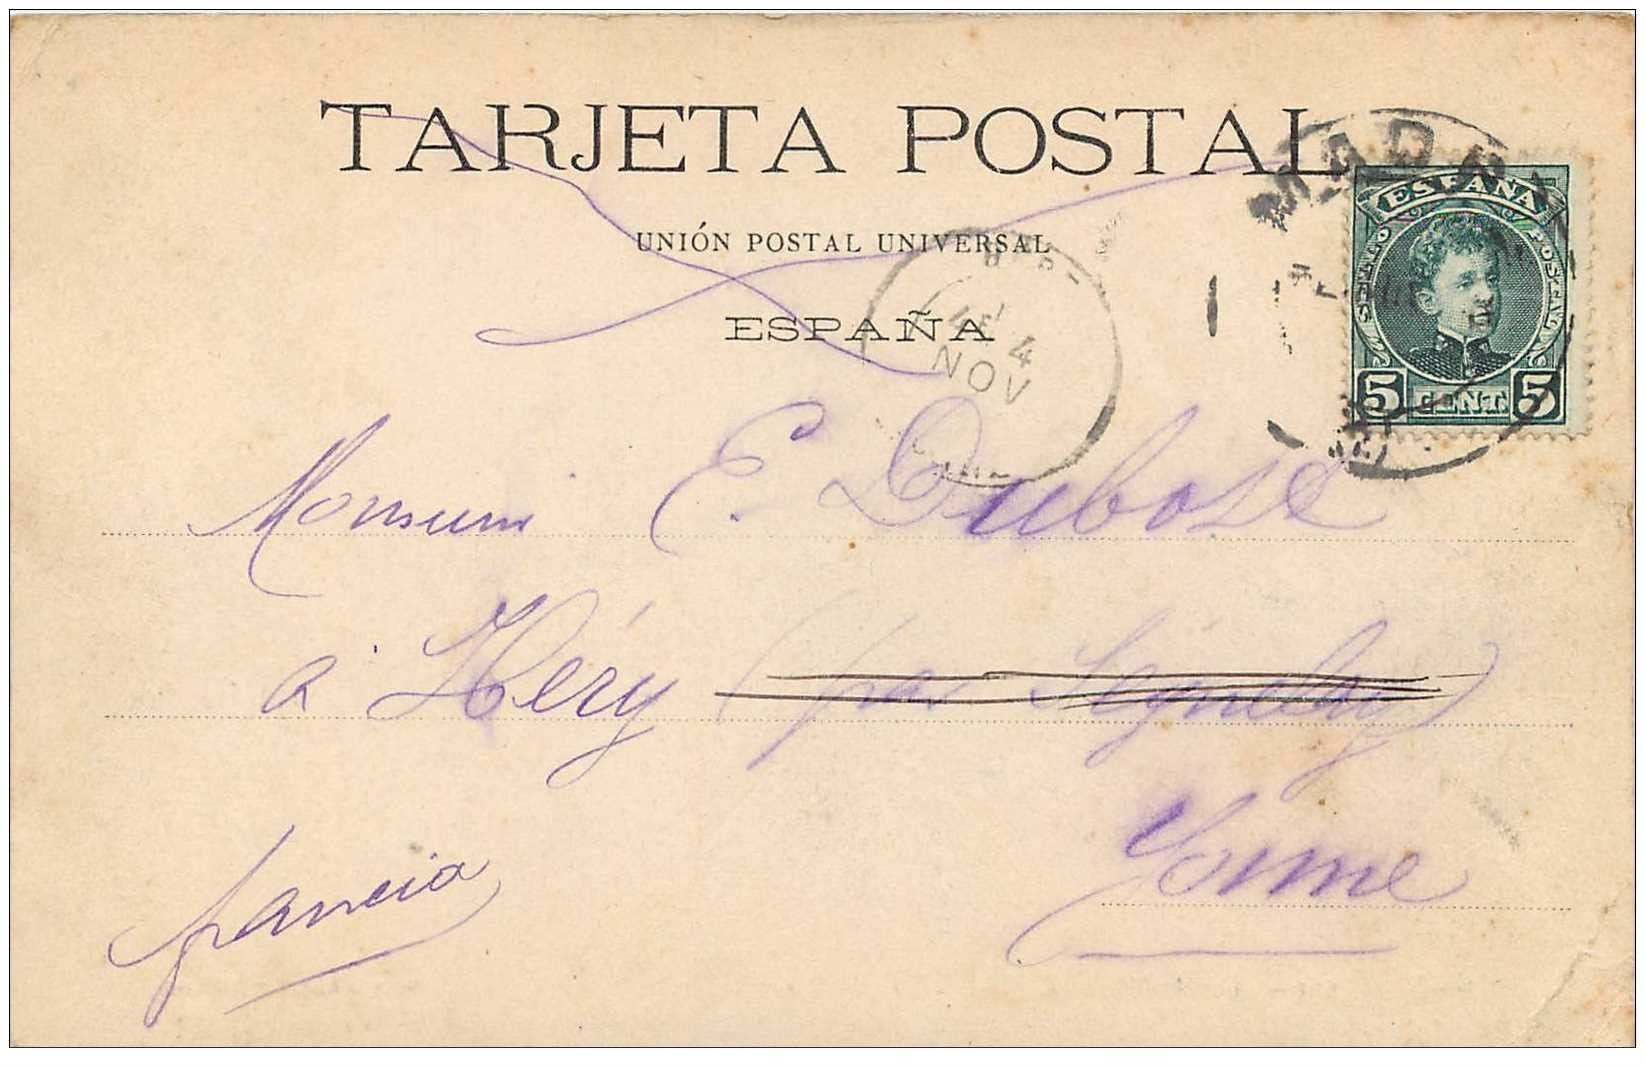 TARJETA POSTAL
UNIÓN POSTAL UNIVERSAL
ESPAÑA
MADRI
ESPAÑA
CORREOS POSTAL
5 CENT. 5
4
NOV
Monsieur E. Dubose
à Héry (par Seignelay)
Yonne
francia